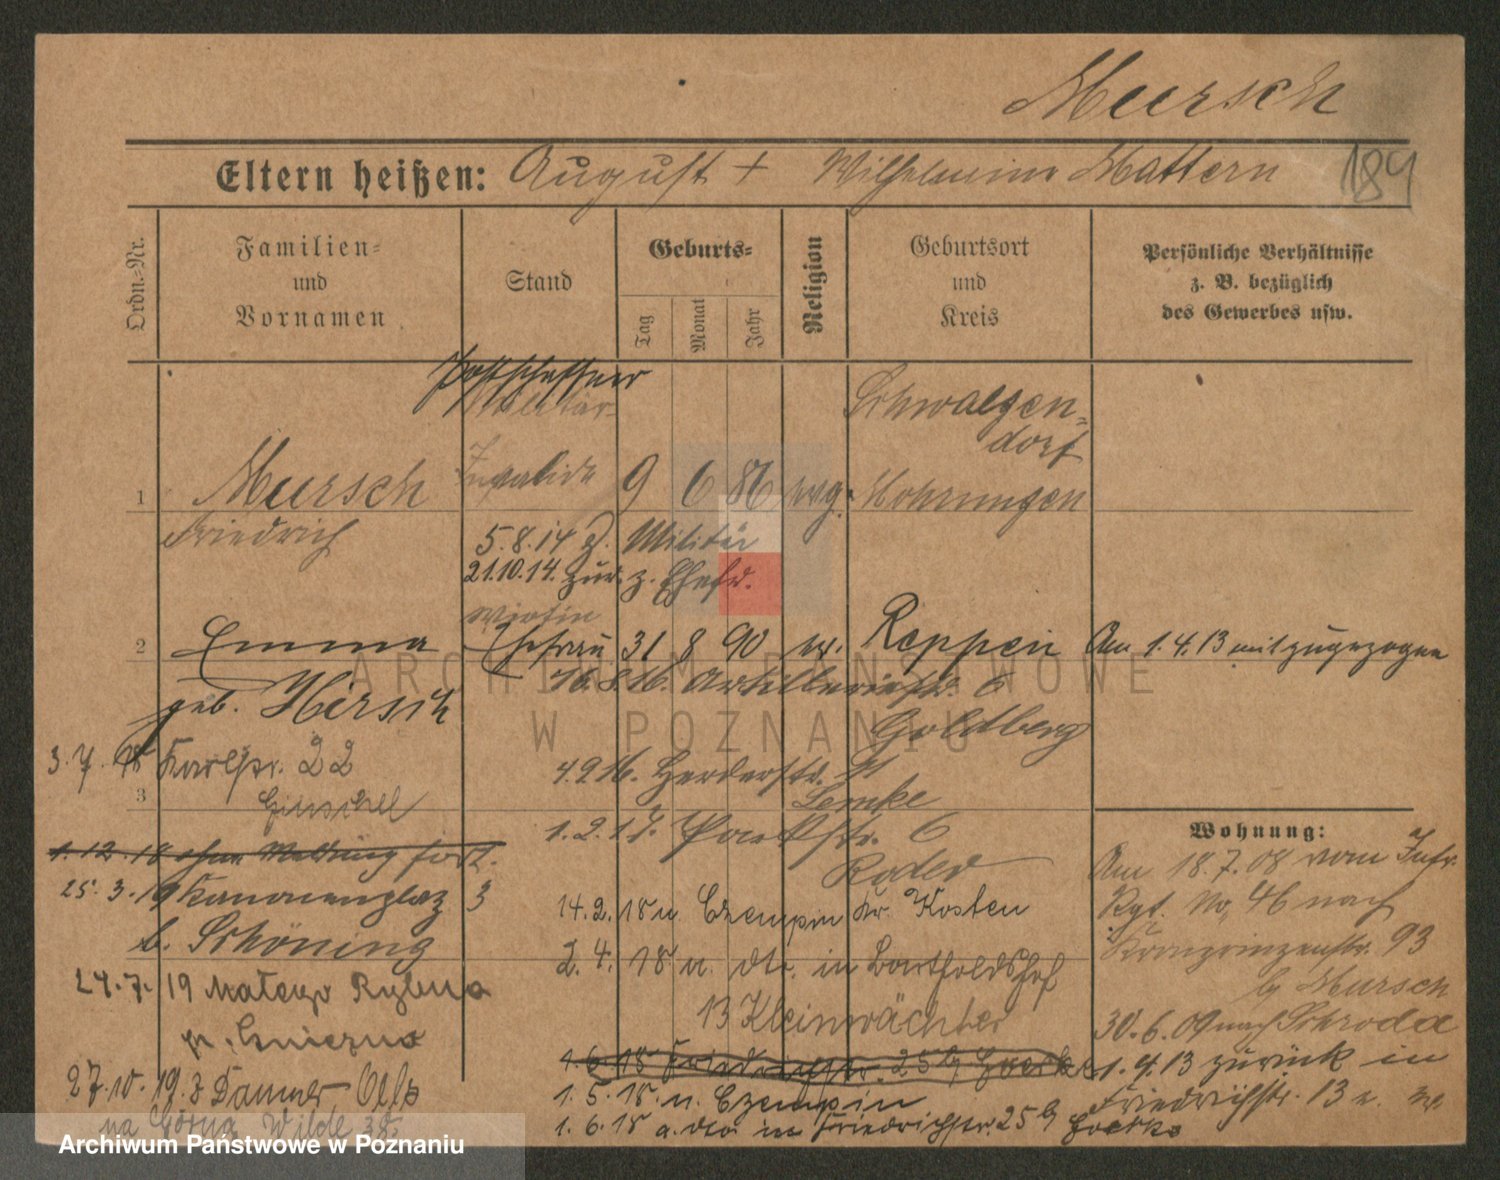 Mursch
Eltern heißen: August + Wilhelmine Mattern 189
Ordn.-Nr.
Familien- und Vornamen
Stand
Geburts-
Tag
Monat
Jahr
Religion
Geburtsort und Kreis
Persönliche Verhältnisse z. B. bezüglich des Gewerbes usw.
Postschaffner
Militär-
Invalide
1 Mursch
Friedrich
9 6 86 evg.
Schwalgen-
dorf
Mohrungen
5.8.14 z. Militär
21.10.14. zur. z. Ehefr.
2 Emma
geb. Hirsch
Ehefrau 31 8 90 ev. Reppen
Am 1.4.13 mit zugezogen
16.8.16. Artilleriestr. 6
Goldberg
4.9.16. Herderstr. 11
Lemke
1.2.17. Parkstr. 6
Rader
14.2.18 n. Czempin Kr. Kosten
2.4.18 n. dtr. in Bartholdshof
13 Kleinwächter
1.6.18 Friedrichstr. 25 b
1.5.18. n. Czempin
1.6.18 a. dto in Friedrichstr. 25 b
3.7.18 Karlstr. 22
3
1.12.18 ohne Meldung fort.
25.3.19 Kanonenplatz 3
b. Schöning
24.7.19 Małego Rybna
p. Gniezno
27.10.19 z
na Górna Wilde 38
Wohnung:
Am 18.7.08 vom Infr.
Rgt. No 46 nach
Kronprinzenstr. 93
b/ Mursch
30.6.09 nach Schroda
1.4.13 zurück in
Friedrichstr. 13
ARCHIWUM PAŃSTWOWE
W POZNANIU
Archiwum Państwowe w Poznaniu